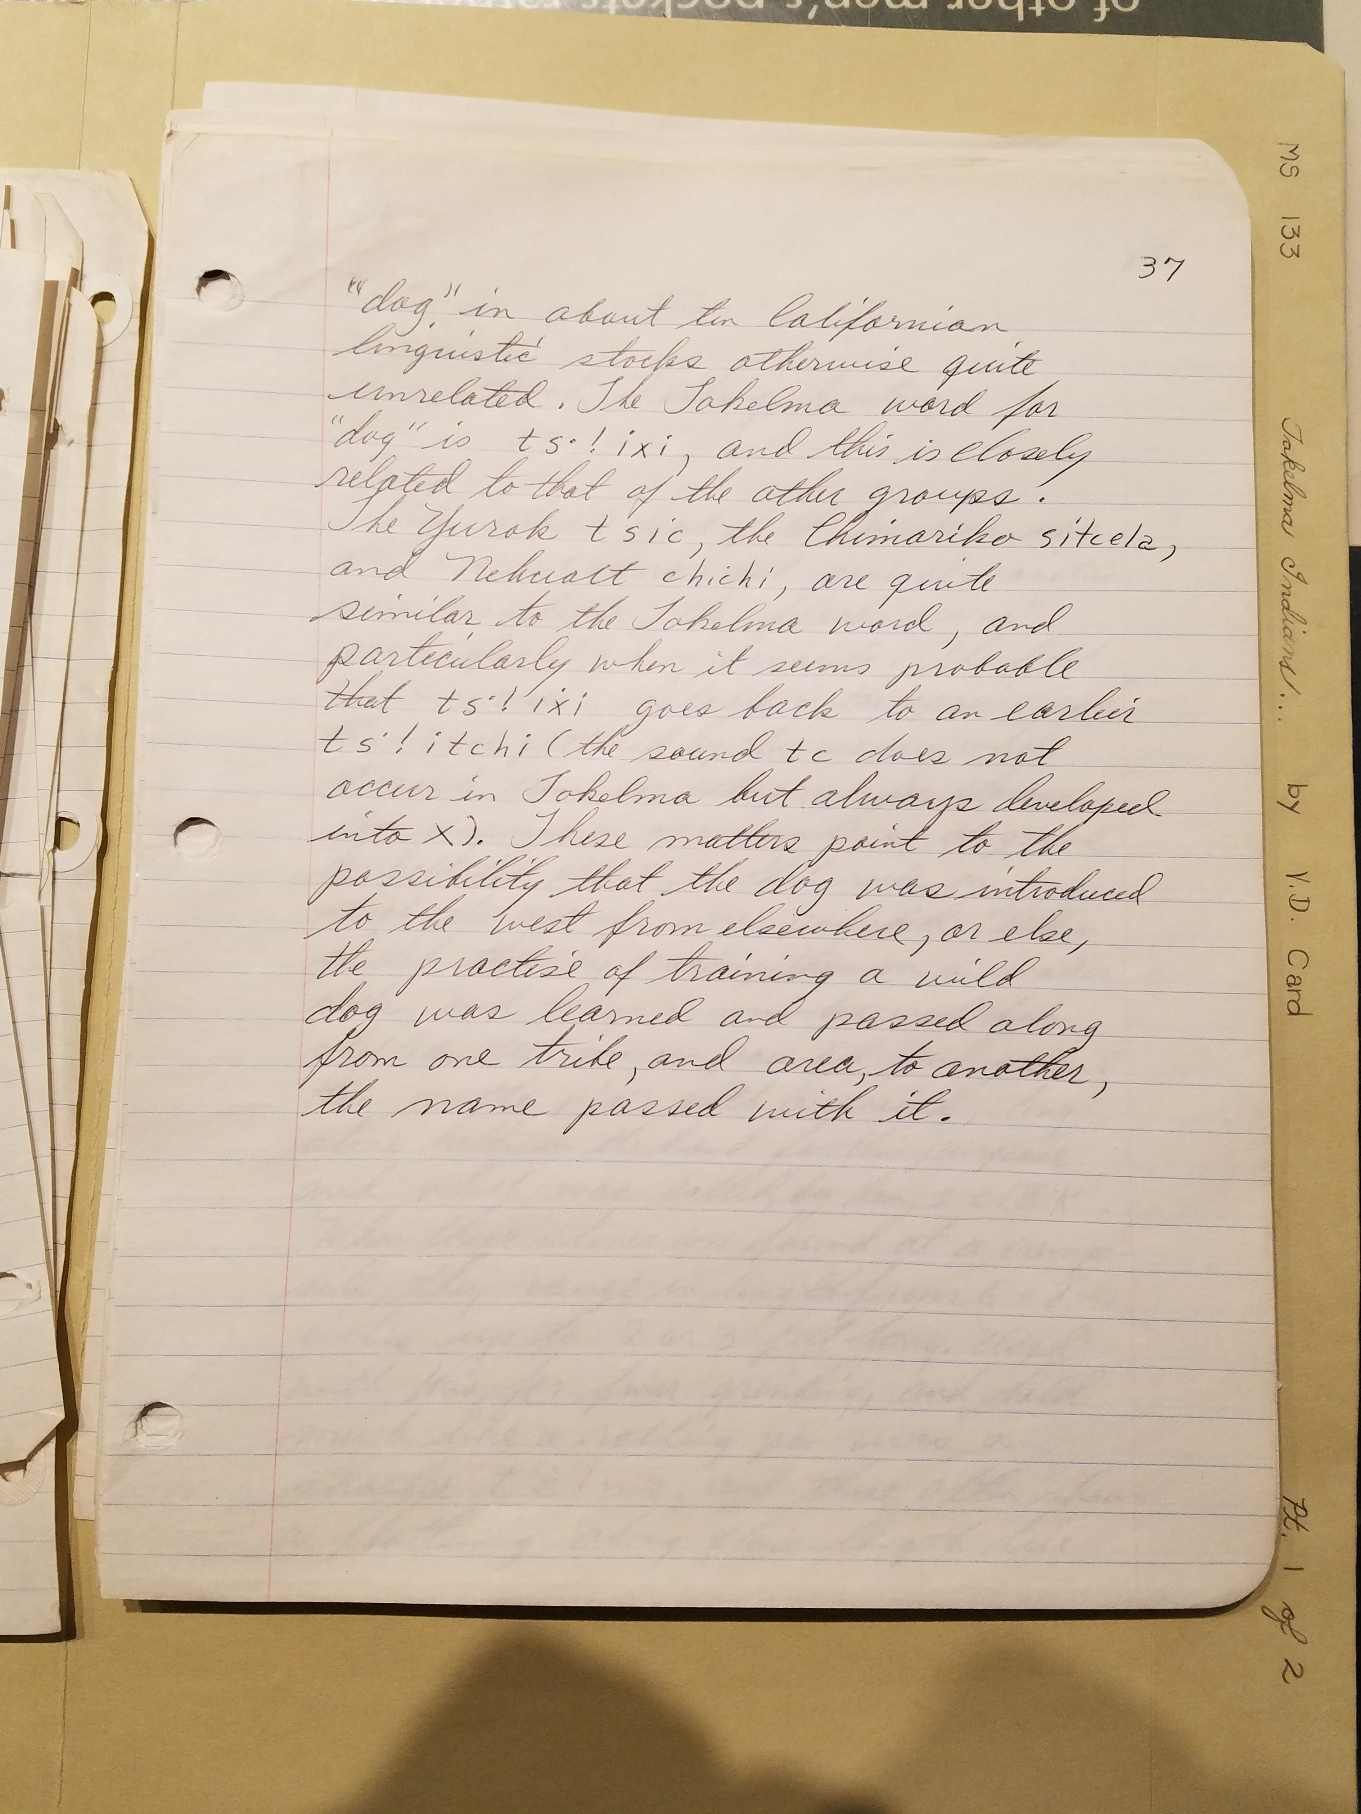 of other men's pockets
37
"dog" in about ten Californian
linguistic stocks otherwise quite
unrelated. The Takelma word for
"dog" is ts·! ixi, and this is closely
related to that of the other groups.
The Yurok tsic, the Chimariko sitcela,
and Nehuatt chichi, are quite
similar to the Takelma word, and
particularly when it seems probable
that ts·! ixi goes back to an earlier
ts·! itchi (the sound tc does not
occur in Takelma but always developed
into x). These matters point to the
possibility that the dog was introduced
to the west from elsewhere, or else,
the practise of training a wild
dog was learned and passed along
from one tribe, and area, to another,
the name passed with it.
MS 133 Takelma Indians... by V.D. Card Pt. 1 of 2